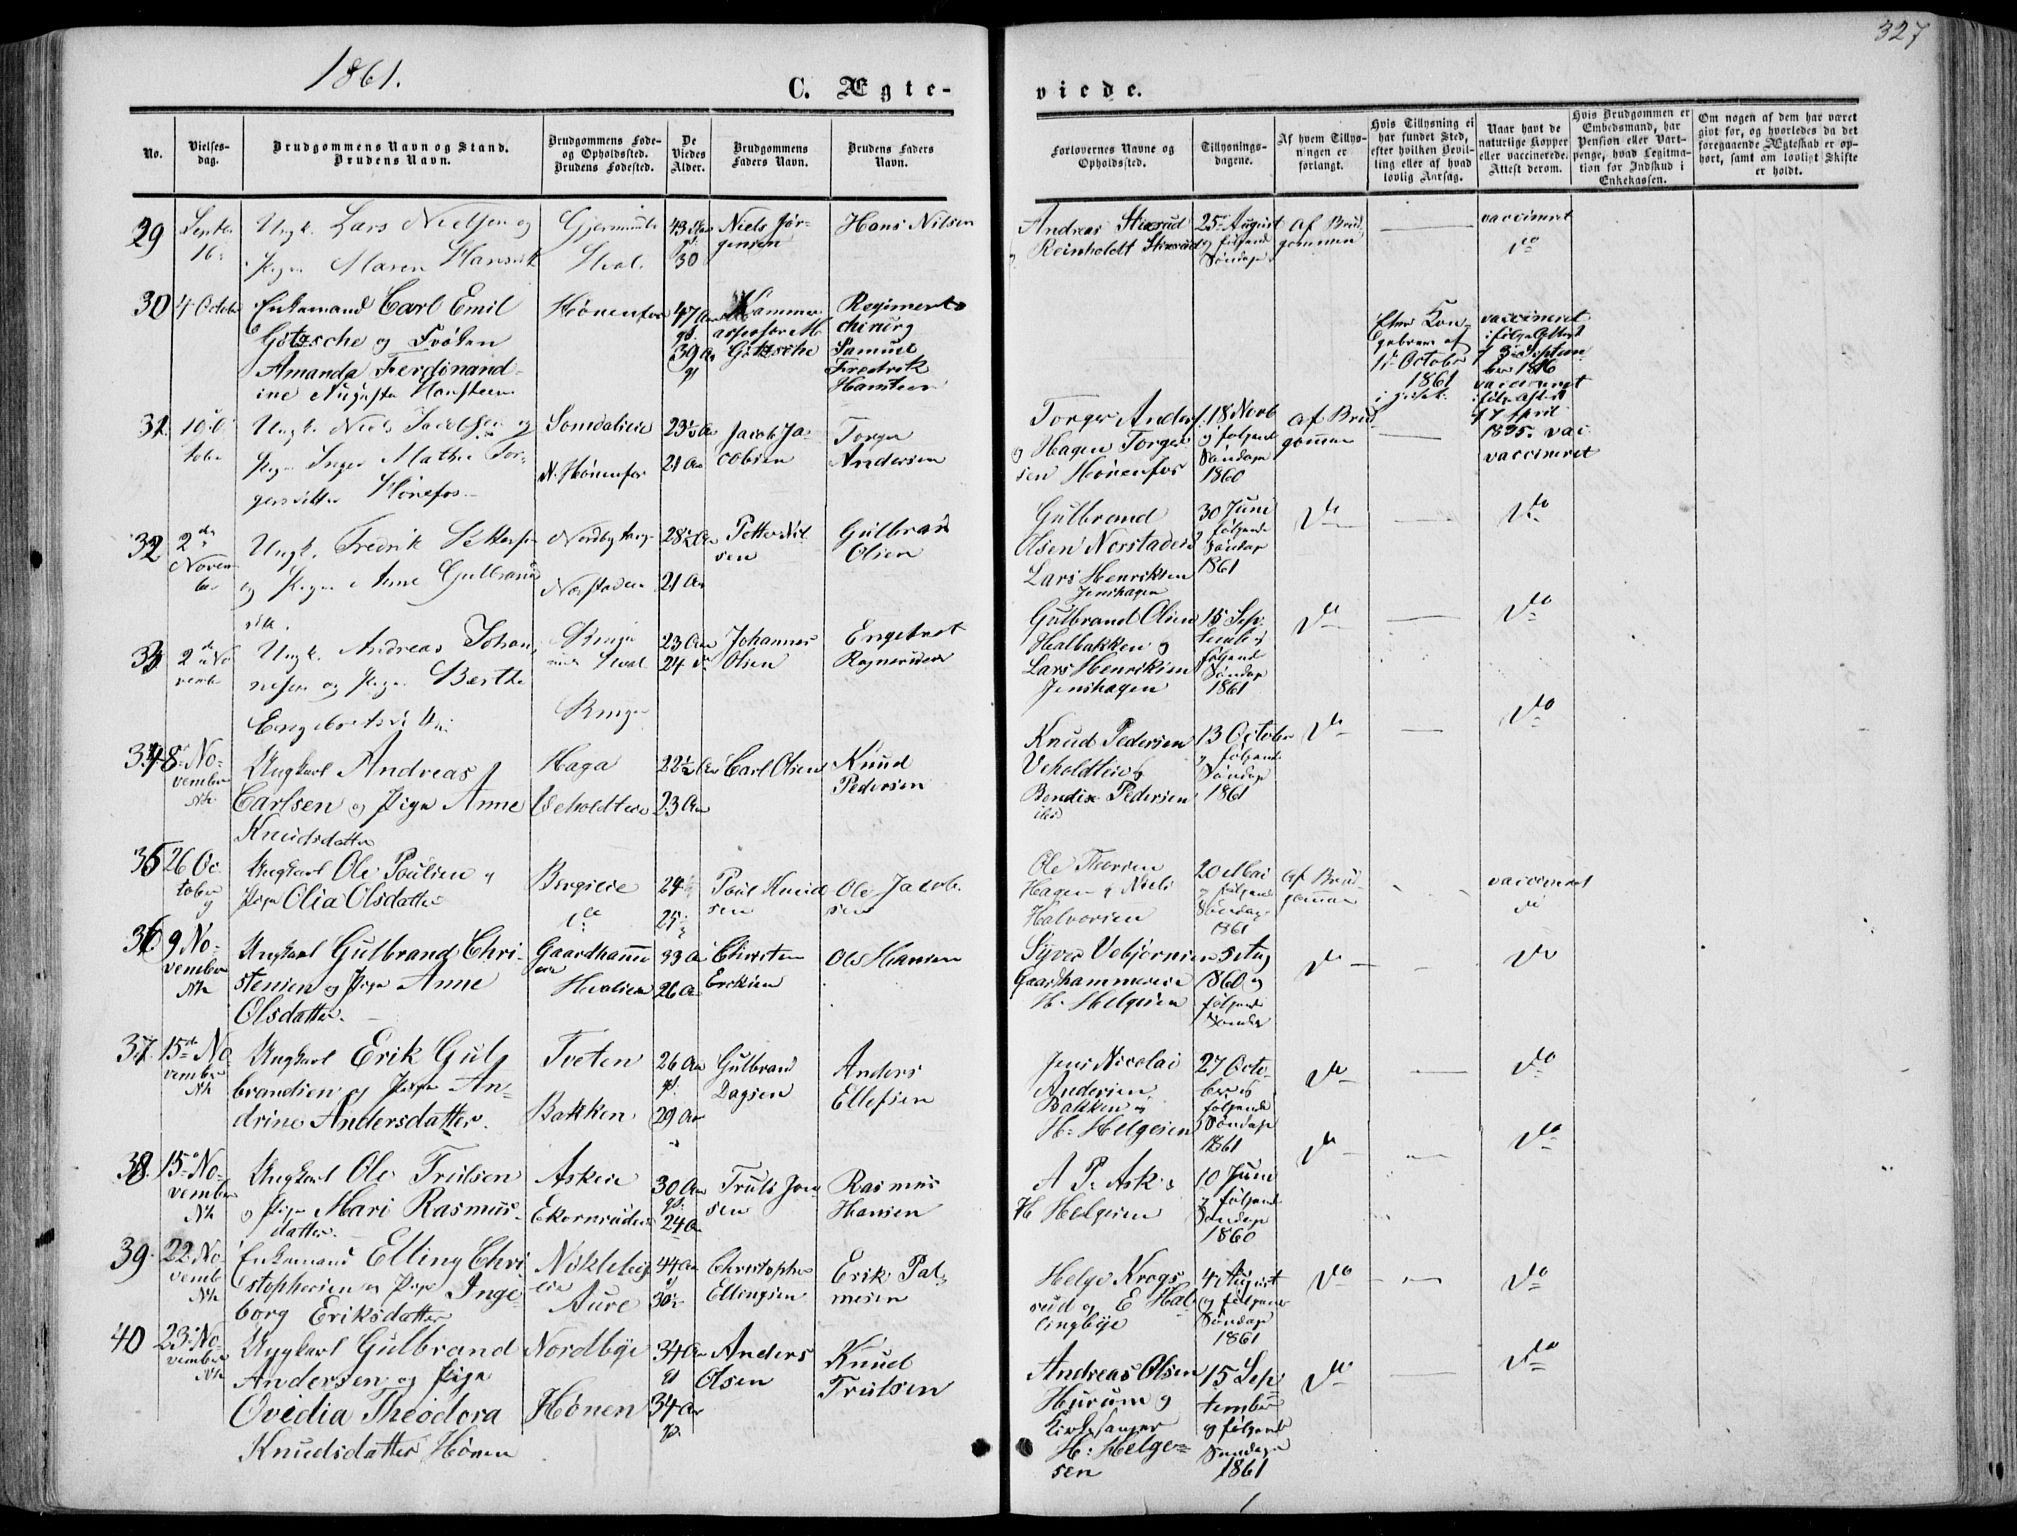 327
1861.
C. Ægte-
viede.
No.
Vielses-
dag.
Brudgommens Navn og Stand.
Brudens Navn.
Brudgommens Føde-
og Opholdssted.
Brudens Fødested.
De
Viedes
Alder.
Brudgommens
Faders Navn.
Brudens Faders
Navn.
Forlovernes Navne og
Opholdssted.
Tillysnings-
dagene.
Af hvem Tillys-
ningen er
forlangt.
Hvis Tillysning ei
har fundet Sted,
efter hvilken Bevil-
ling eller af hvad
lovlig Aarsag.
Naar havt de
naturlige Kopper
eller vaccinerede.
Attest derom.
Hvis Brudgommen er
Embedsmand, har
Pension eller Vart-
penge, hvad Legitima-
tion for Indskud i
Enkekassen.
Om nogen af dem har været
givt for, og hvorledes da det
foregaaende Ægteskab er op-
hørt, samt om lovligt Skifte
er holdt.
29
16
Ungk. Lars Nielsen og
Pige Maren Hansdt
Hval
43
30
Niels Jør-
gensen
Hans Nilsen
Andreas Stixrud
Reinholdt Stixrud
25 August
og følgende
Søndage
af Brud
gommen
vaccineret
do
30
4 October
Enkemand Carl Emil
Götzsche og Frøken
Amanda Ferdinand-
ine Augusta Hansteen
Hønenfos
47 Aar
39 Aar
Kammer
assessor
Götzsche
Regiments
chirurg
Samuel
Fredrik
Hansteen
Efter Kon-
af
1 October
1861
vaccineret
ifølge Attest
3 Septem
ber 1816
vaccineret
ifølge Attest
17 April
1835
31
10 Oc
tober
Ungk. Niels Jacobsen og
Pige Inger Mathea Tor-
gersdatter Hønefos
N. Hønenfos
23½ Aar
21 Aar
Jacob Ja-
cobsen
Torger
Andersen
Torger Anders.
og Hagen Torger
sen Hønenfos
18 Novb
og følgende
Søndage
1860
af Brud
gommen
vaccineret
32
2den
Novem
ber
Ungk. Fredrik Pettersen
og Pige Anne Gulbrands
dtr.
Norstadeie
28½ Aar
21 Aar
Petter Nil
sen
Gulbrand
Olsen
Gulbrand
Olsen Norstadeie
Lars Henriksen
Jenshagen
30 Juni
følgende
Søndage
1861
do
do
33
2den No
vember
Ungk. Andreas Johan-
nesen og Pige Berthe
Engebretsdtr.
23 Aar
24 do
Johannes
Olsen
Engebret
Gulbrand Olsen
Halbakken og
Lars Henriksen
Jenshagen
15 Sep-
tember
følgende
Søndage
1861
do
do
34
8 No-
vember
Nk
Ungkarl Andreas
Carlsen og Pige Anne
Knudsdatter
Haga
Veholdteie
22½ Aar
23 Aar
Carl Olsen
Knud
Pedersen
Knud Pedersen
Veholdteie og
Bendix Pedersen
ibd
13 October
og følgende
Søndage
1861
do
do
35
26 Oc
tober
Ungkarl Ole Poulsen og
Pige Olia Olsdatter
Bergseie
do
24½
25½
Poul Knud
sen
Ole Jacob
sen
Ole Thorsen
Hagen og Niels
Halvorsen
20 Mai
og følgende
Søndage
1861
af Brud-
gommen
vaccineret
do
36
9 No-
vember
Nk
Ungkarl Gulbrand Chri-
stensen og Pige Anne
Olsdatter.
Gaardhammer
eie
33 Aar
26 Aar
Christen
Eriksen
Ole Hansen
Syver Vebjørnsen
Gaardhammereie
H. Helgesen
5 Aug
1860 og
følgende
Søndag
do
do
37.
15de No
vember
Nk
Ungkarl Erik Gul-
brandsen og Pige An-
drine Andersdatter.
Tveten
Bakken
26 Aar
29 Aar
Gulbrand
Dagsen
Anders
Ellefsen
Jens Nicolai
Andersen
Bakken og
H. Helgesen
27 Octo-
ber og
følgende
Søndage
1861
do
do
38.
15 No-
vember
Nk
Ungkarl Ole Trulsen
og Pige Mari Rasmus-
datter.
Askeie
Ekornrudeie
30 Aar
24 Aar
Truls Jon
sen
Rasmus
Hansen
A P. Ask og
H Helgesen
10 Juni
og følgende
Søndage
1860
do
do
39.
22 No
vemb
Nk
Enkemand Elling Chri
stophersen og Pige Inge-
borg Eriksdatter
Nikleby
eie
Aure
44 Aar
30½
Christopher
Ellingsen
Erik Pal-
mesen
Helge Krogs
rud og E Hal
lingbye
4 August
og følgende
Søndage
1861
do
do
40
23 No-
vember
Nk
Ungkarl Gulbrand
Andersen og Pige
Ovidia Theodora
Knudsdatter Hønen
Nordbye
Hønen
34 Aar
34 Aar
Anders
Olsen
Knud
Trulsen
Andreas Olsen
Hurum og
Kirkesanger
H. Helge-
sen
15 Sep
tember
og følgende
Søndage
1861
do
do